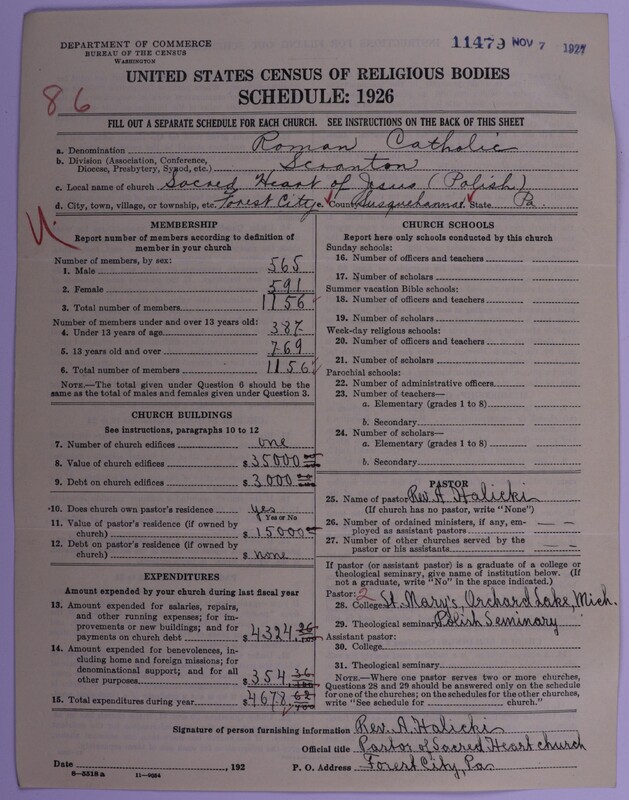 DEPARTMENT OF COMMERCE
BUREAU OF THE CENSUS
WASHINGTON
11479 NOV 7 1927
UNITED STATES CENSUS OF RELIGIOUS BODIES
SCHEDULE: 1926
86
FILL OUT A SEPARATE SCHEDULE FOR EACH CHURCH. SEE INSTRUCTIONS ON THE BACK OF THIS SHEET
a. Denomination Roman Catholic
b. Division (Association, Conference, Diocese, Presbytery, Synod, etc.) Scranton
c. Local name of church Sacred Heart of Jesus (Polish)
d. City, town, village, or township, etc. Forest City e. County Susquehanna f. State Pa
MEMBERSHIP
Report number of members according to definition of
member in your church
Number of members, by sex:
1. Male 565
2. Female 591
3. Total number of members 1156
Number of members under and over 13 years old:
4. Under 13 years of age 387
5. 13 years old and over 769
6. Total number of members 1156
NOTE.—The total given under Question 6 should be
same as the total of males and females given under Question 3.
CHURCH BUILDINGS
See instructions, paragraphs 10 to 12
7. Number of church edifices one
8. Value of church edifices $35000
9. Debt on church edifices $3000
10. Does church own pastor's residence yes
Yes or No
11. Value of pastor's residence (if owned by
church) $15000
12. Debt on pastor's residence (if owned by
church) $none
EXPENDITURES
Amount expended by your church during last fiscal year
13. Amount expended for salaries, repairs,
and other running expenses; for im-
provements or new buildings; and for
payments on church debt $4324 26/100
14. Amount expended for benevolences, in-
cluding home and foreign missions; for
denominational support; and for all
other purposes $354 36/100
15. Total expenditures during year $4678 62/100
CHURCH SCHOOLS
Report here only schools conducted by this church
Sunday schools:
16. Number of officers and teachers
17. Number of scholars
Summer vacation Bible schools:
18. Number of officers and teachers
19. Number of scholars
Week-day religious schools:
20. Number of officers and teachers
21. Number of scholars
Parochial schools:
22. Number of administrative officers
23. Number of teachers—
a. Elementary (grades 1 to 8)
b. Secondary
24. Number of scholars—
a. Elementary (grades 1 to 8)
b. Secondary
PASTOR
25. Name of pastor Rev. A. Halicki
(If church has no pastor, write "None")
26. Number of ordained ministers, if any, em-
ployed as assistant pastors — —
27. Number of other churches served by the
pastor or his assistants — —
If pastor (or assistant pastor) is a graduate of a college or
theological seminary, give name of institution below. (If
not a graduate, write "No" in the space indicated.)
Pastor: 2
28. College St. Mary's, Orchard Lake, Mich.
29. Theological seminary Polish Seminary
Assistant pastor:
30. College
31. Theological seminary
NOTE.—Where one pastor serves two or more churches,
Questions 28 and 29 should be answered only on the schedule
for one of the churches; on the schedules for the other churches,
write "See schedule for church."
Signature of person furnishing information Rev. A. Halicki
Official title Pastor of Sacred Heart church
Date , 192 P. O. Address Forest City, Pa
8—5518 a 11—9024